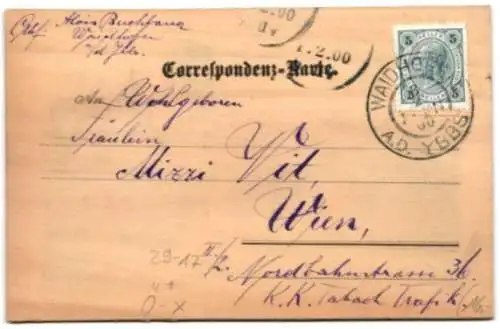 Abs: Alois Buchbauer
Waidhofen
a/d Ybbs.
2.00
1.2.00
5 HELLER 5
WAIDHOFEN
A.D. YBBS
Correspondenz-Karte.
An Wohlgeboren
Fräulein
Mizzi Vit,
Wien,
II/2. Nordbahnstrasse 36
K. K. Tabach Trafik
29-17